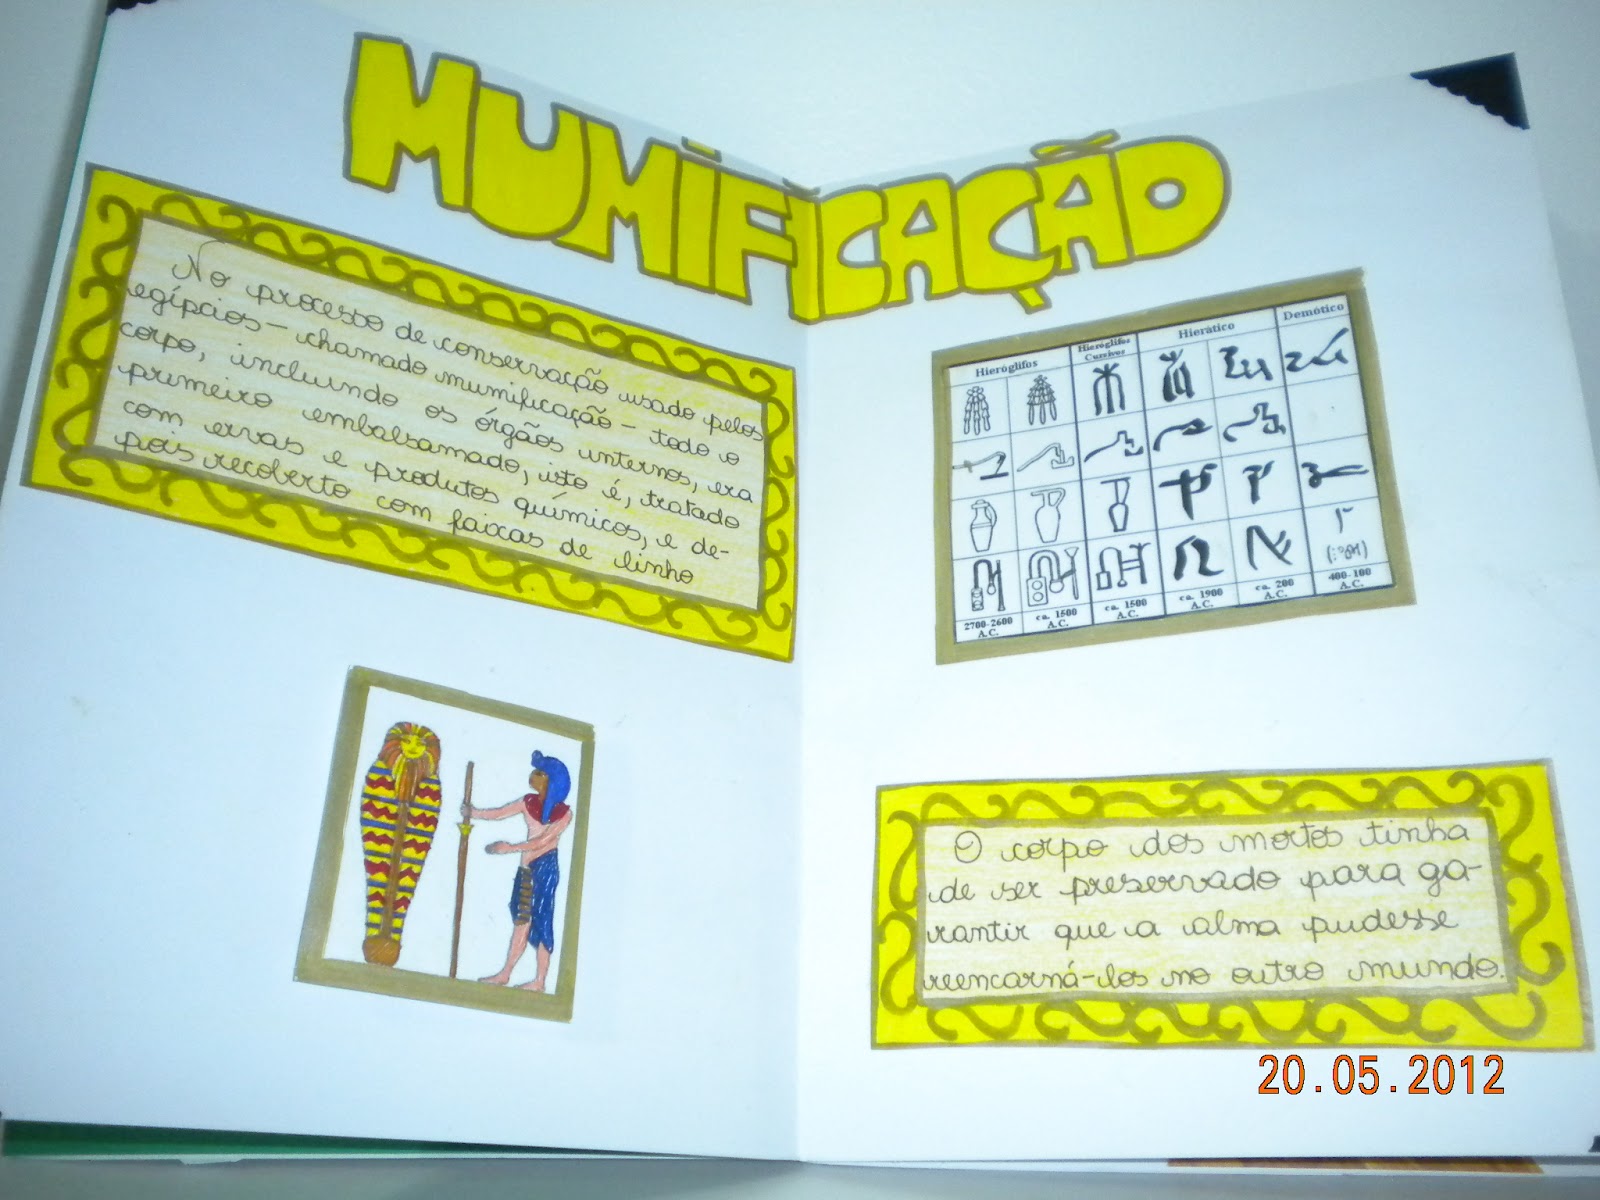 MUMIFICAÇÃO
No processo de conservação usado pelos
egípcios - chamado mumificação - todo o
corpo, incluindo os órgãos internos, era
primeiro embalsamado, isto é, tratado
com ervas e produtos químicos, e de-
pois recoberto com faixas de linho
Hieróglifos
Hieróglifos Cursivos
Hierático
Demótico
2700-2600 A.C.
ca. 1500 A.C.
ca. 1500 A.C.
ca. 1900 A.C.
ca. 200 A.C.
400-100 A.C.
O corpo dos mortos tinha
de ser preservado para ga-
rantir que a alma pudesse
reencarná-los no outro mundo.
20.05.2012